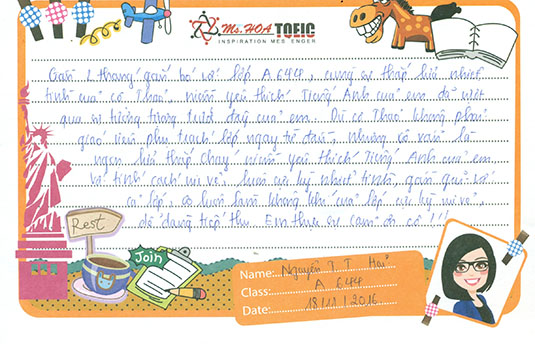 Ms. HOA TOEIC
INSPIRATION MESSENGER
Gần 1 tháng gắn bó với lớp A644, cùng sự thắp lửa nhiệt
tình của cô Thảo, niềm yêu thích Tiếng Anh của em đã vượt
qua sự tưởng tượng trước đây của em. Dù cô Thảo không phải
giáo viên phụ trách lớp ngay từ đầu. Nhưng cô vẫn là
ngọn lửa thắp cháy niềm yêu thích Tiếng Anh của em
Với tính cách vui vẻ, luôn cực kỳ nhiệt tình, gần gũi với
cả lớp, cô luôn làm không khí của lớp cực kỳ vui vẻ,
dễ dàng tiếp thu. Em thực sự cảm ơn cô !!!
Rest
Join
Name: Nguyễn T. T. Hải
Class: A 644
Date: 18/11/2016